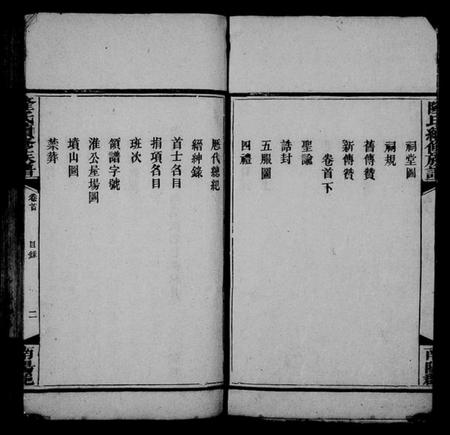 隆氏續修族譜
祠堂圖
祠規
舊傳贊
新傳贊
卷首下
聖諭
誥封
五服圖
四禮
南陽堂
歷代總紀
縉紳錄
首士名目
捐項名目
班次
領譜字號
淮公屋場圖
墳山圖
禁葬
隆氏續修族譜
卷首
目錄
二